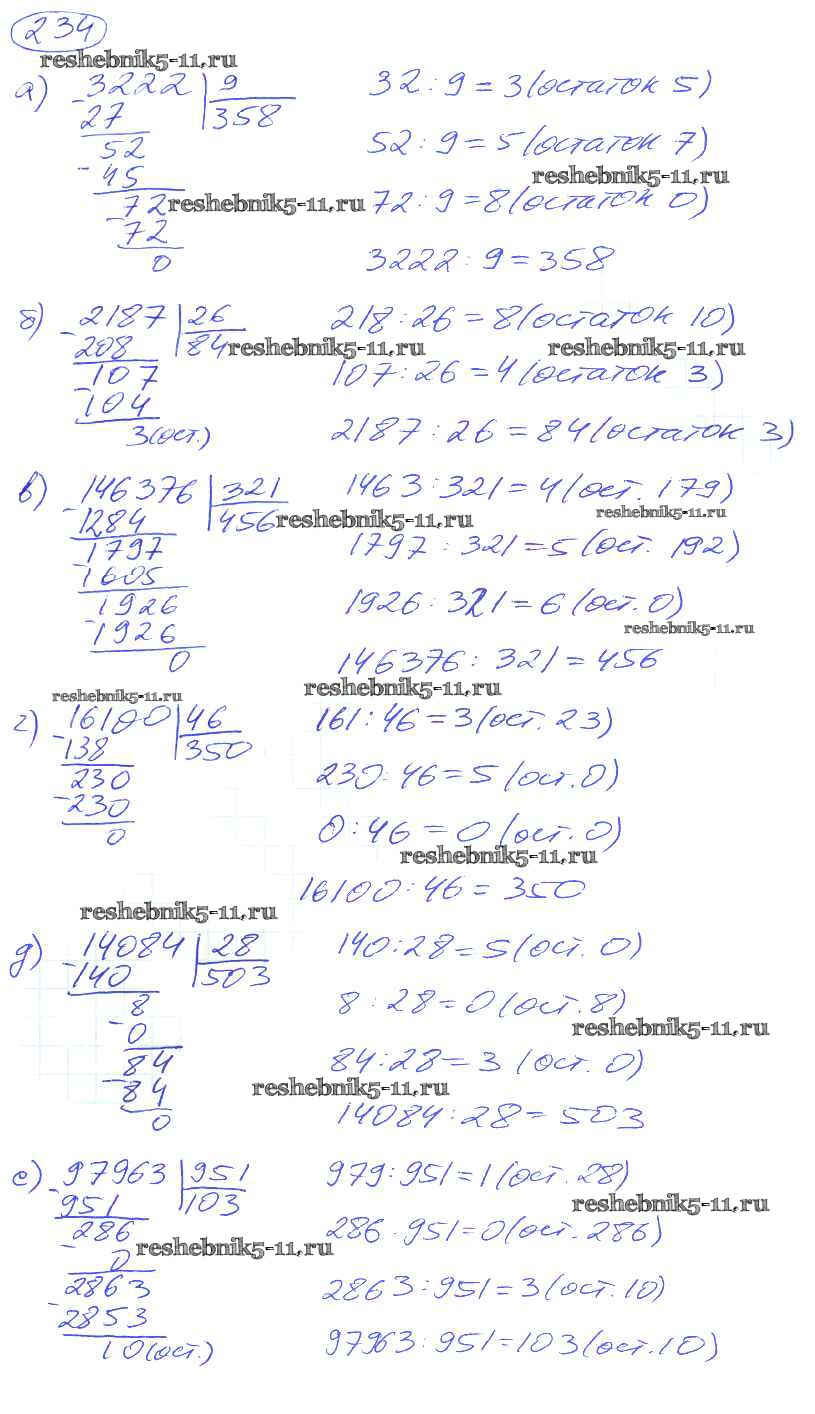 234
reshebnik5-11.ru
а) - 3222 | 9 32 : 9 = 3 (остаток 5)
27 358
52 52 : 9 = 5 (остаток 7)
- 45 reshebnik5-11.ru
72 reshebnik5-11.ru 72 : 9 = 8 (остаток 0)
- 72
0 3222 : 9 = 358
б) - 2187 | 26 218 : 26 = 8 (остаток 10)
208 84 reshebnik5-11.ru reshebnik5-11.ru
- 107 107 : 26 = 4 (остаток 3)
104
3 (ост.) 2187 : 26 = 84 (остаток 3)
в) - 146376 | 321 1463 : 321 = 4 (ост. 179)
1284 456 reshebnik5-11.ru reshebnik5-11.ru
- 1797 1797 : 321 = 5 (ост. 192)
1605
- 1926 1926 : 321 = 6 (ост. 0)
1926 reshebnik5-11.ru
0 146376 : 321 = 456
reshebnik5-11.ru reshebnik5-11.ru
г) - 16100 | 46 161 : 46 = 3 (ост. 23)
138 350
- 230 230 : 46 = 5 (ост. 0)
230
0 0 : 46 = 0 (ост. 0)
reshebnik5-11.ru
16100 : 46 = 350
reshebnik5-11.ru
д) - 14084 | 28 140 : 28 = 5 (ост. 0)
140 503
8 8 : 28 = 0 (ост. 8)
- 0 reshebnik5-11.ru
84 84 : 28 = 3 (ост. 0)
- 84 reshebnik5-11.ru
0 14084 : 28 = 503
е) - 97963 | 951 979 : 951 = 1 (ост. 28)
951 103 reshebnik5-11.ru
286 286 : 951 = 0 (ост. 286)
- 0 reshebnik5-11.ru
2863 2863 : 951 = 3 (ост. 10)
- 2853
10 (ост.) 97963 : 951 = 103 (ост. 10)